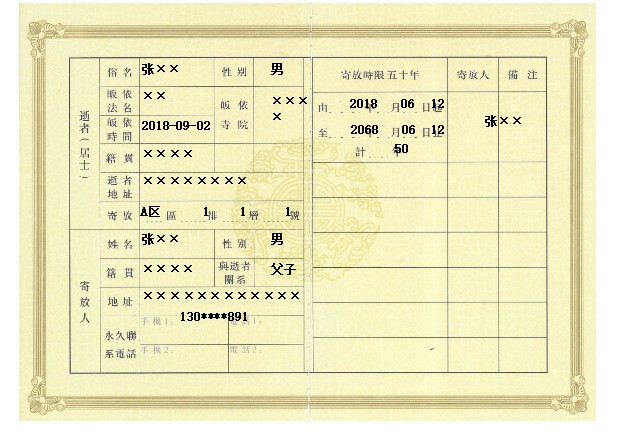 逝者(居士)
俗名 张×× 性別 男
皈依法名 ×× 皈依寺院 ××××
皈依時間 2018-09-02
籍貫 ××××
逝者地址 ××××××××
寄放 A区 區 1排 1層 1號
寄放人
姓名 张×× 性別 男
籍貫 ×××× 與逝者關系 父子
地址 ××××××××××××
130****891
永久聯系電話
手機1: 電話1:
手機2: 電話2:
寄放時限五十年 寄放人 備注
由 2018 月06 日12
至 2068 月06 日12
張××
計 50 年